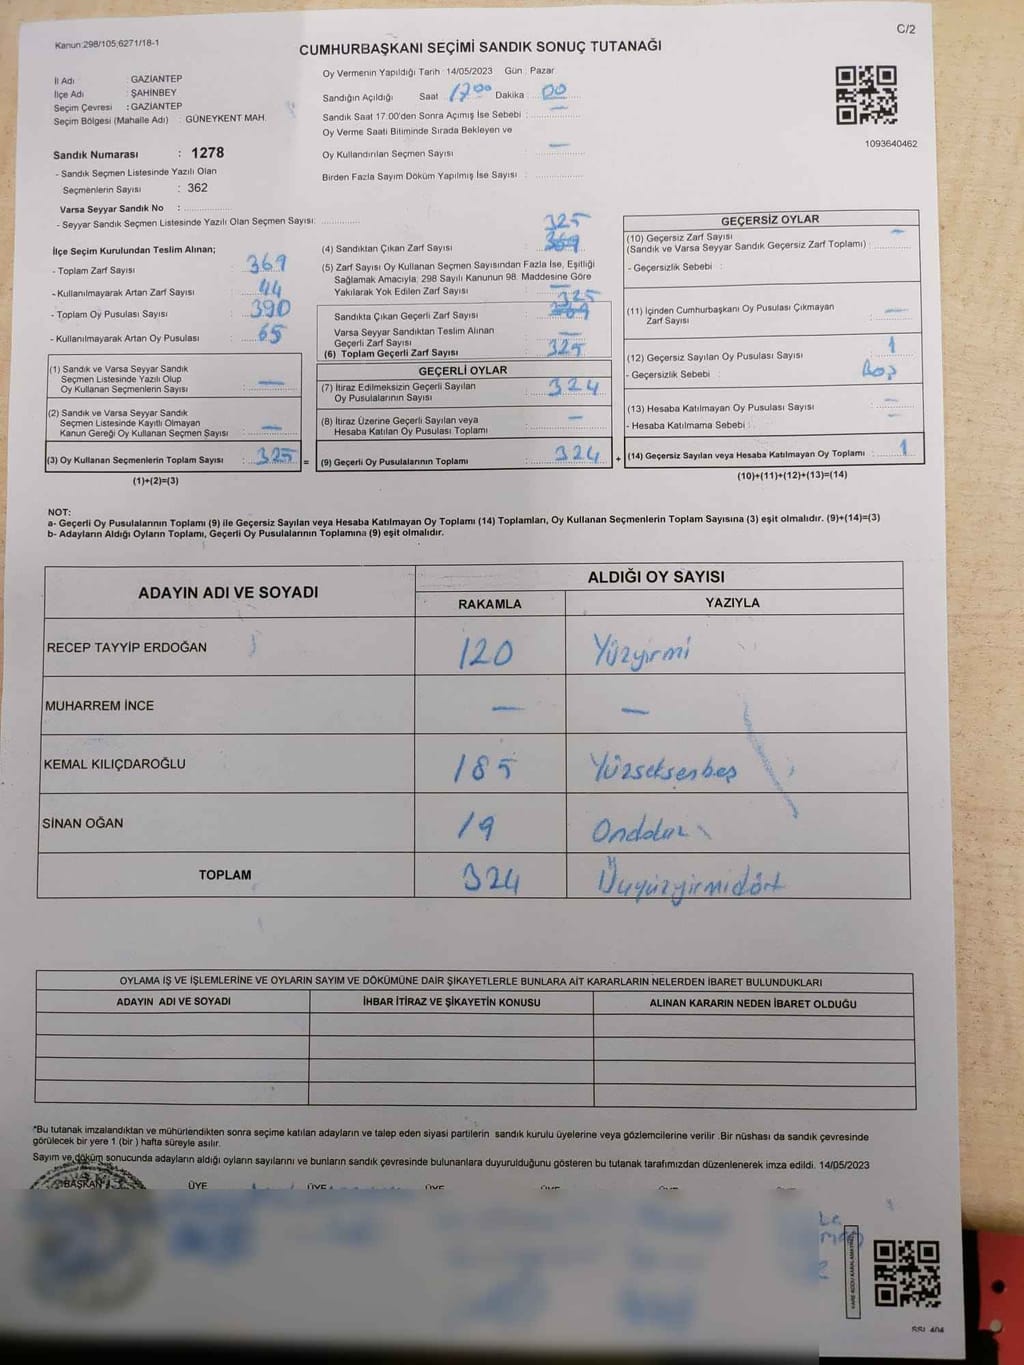 Kanun:298/105;6271/18-1
C/2
CUMHURBAŞKANI SEÇİMİ SANDIK SONUÇ TUTANAĞI
İl Adı : GAZİANTEP
İlçe Adı : ŞAHİNBEY
Seçim Çevresi : GAZİANTEP
Seçim Bölgesi (Mahalle Adı) : GÜNEYKENT MAH.
Sandık Numarası : 1278
- Sandık Seçmen Listesinde Yazılı Olan
Seçmenlerin Sayısı : 362
Varsa Seyyar Sandık No :
- Seyyar Sandık Seçmen Listesinde Yazılı Olan Seçmen Sayısı:
Oy Vermenin Yapıldığı Tarih : 14/05/2023 Gün : Pazar
Sandığın Açıldığı Saat 17:00 Dakika 00
Sandık Saat 17:00'den Sonra Açımış İse Sebebi : —
Oy Verme Saati Bitiminde Sırada Bekleyen ve
Oy Kullandırılan Seçmen Sayısı : —
Birden Fazla Sayım Döküm Yapılmış İse Sayısı :
1093640462
İlçe Seçim Kurulundan Teslim Alınan;
- Toplam Zarf Sayısı : 369
- Kullanılmayarak Artan Zarf Sayısı : 44
- Toplam Oy Pusulası Sayısı : 390
- Kullanılmayarak Artan Oy Pusulası : 65
(1) Sandık ve Varsa Seyyar Sandık
Seçmen Listesinde Yazılı Olup
Oy Kullanan Seçmenlerin Sayısı : —
(2) Sandık ve Varsa Seyyar Sandık
Seçmen Listesinde Kayıtlı Olmayan
Kanun Gereği Oy Kullanan Seçmen Sayısı : —
(3) Oy Kullanan Seçmenlerin Toplam Sayısı : 325 =
(1)+(2)=(3)
325
(4) Sandıktan Çıkan Zarf Sayısı : 369
(5) Zarf Sayısı Oy Kullanan Seçmen Sayısından Fazla İse, Eşitliği
Sağlamak Amacıyla; 298 Sayılı Kanunun 98. Maddesine Göre
Yakılarak Yok Edilen Zarf Sayısı : —
325
Sandıkta Çıkan Geçerli Zarf Sayısı : 369
Varsa Seyyar Sandıktan Teslim Alınan
Geçerli Zarf Sayısı : —
(6) Toplam Geçerli Zarf Sayısı : 325
GEÇERLİ OYLAR
(7) İtiraz Edilmeksizin Geçerli Sayılan
Oy Pusulalarının Sayısı : 324
(8) İtiraz Üzerine Geçerli Sayılan veya
Hesaba Katılan Oy Pusulası Toplamı : —
(9) Geçerli Oy Pusulalarının Toplamı : 324 +
GEÇERSİZ OYLAR
(10) Geçersiz Zarf Sayısı
(Sandık ve Varsa Seyyar Sandık Geçersiz Zarf Toplamı) : —
- Geçersizlik Sebebi :
(11) İçinden Cumhurbaşkanı Oy Pusulası Çıkmayan
Zarf Sayısı : —
(12) Geçersiz Sayılan Oy Pusulası Sayısı : 1
- Geçersizlik Sebebi : Boş
(13) Hesaba Katılmayan Oy Pusulası Sayısı : —
- Hesaba Katılmama Sebebi : —
(14) Geçersiz Sayılan veya Hesaba Katılmayan Oy Toplamı : 1
(10)+(11)+(12)+(13)=(14)
NOT:
a- Geçerli Oy Pusulalarının Toplamı (9) ile Geçersiz Sayılan veya Hesaba Katılmayan Oy Toplamı (14) Toplamları, Oy Kullanan Seçmenlerin Toplam Sayısına (3) eşit olmalıdır. (9)+(14)=(3)
b- Adayların Aldığı Oyların Toplamı, Geçerli Oy Pusulalarının Toplamına (9) eşit olmalıdır.
ADAYIN ADI VE SOYADI ALDIĞI OY SAYISI
RAKAMLA YAZIYLA
RECEP TAYYİP ERDOĞAN 120 Yüzyirmi
MUHARREM İNCE — —
KEMAL KILIÇDAROĞLU 185 Yüzseksenbeş
SİNAN OĞAN 19
TOPLAM 324 Üçyüzyirmidört
OYLAMA İŞ VE İŞLEMLERİNE VE OYLARIN SAYIM VE DÖKÜMÜNE DAİR ŞİKAYETLERLE BUNLARA AİT KARARLARIN NELERDEN İBARET BULUNDUKLARI
ADAYIN ADI VE SOYADI İHBAR İTİRAZ VE ŞİKAYETİN KONUSU ALINAN KARARIN NEDEN İBARET OLDUĞU
*Bu tutanak imzalandıktan ve mühürlendikten sonra seçime katılan adayların ve talep eden siyasi partilerin sandık kurulu üyelerine veya gözlemcilerine verilir .Bir nüshası da sandık çevresinde
görülecek bir yere 1 (bir ) hafta süreyle asılır.
Sayım ve döküm sonucunda adayların aldığı oyların sayılarını ve bunların sandık çevresinde bulunanlara duyurulduğunu gösteren bu tutanak tarafımızdan düzenlenerek imza edildi. 14/05/2023
BAŞKAN ÜYE ÜYE ÜYE ÜYE ÜYE ÜYE
KARE KODU KARALAMAYINIZ